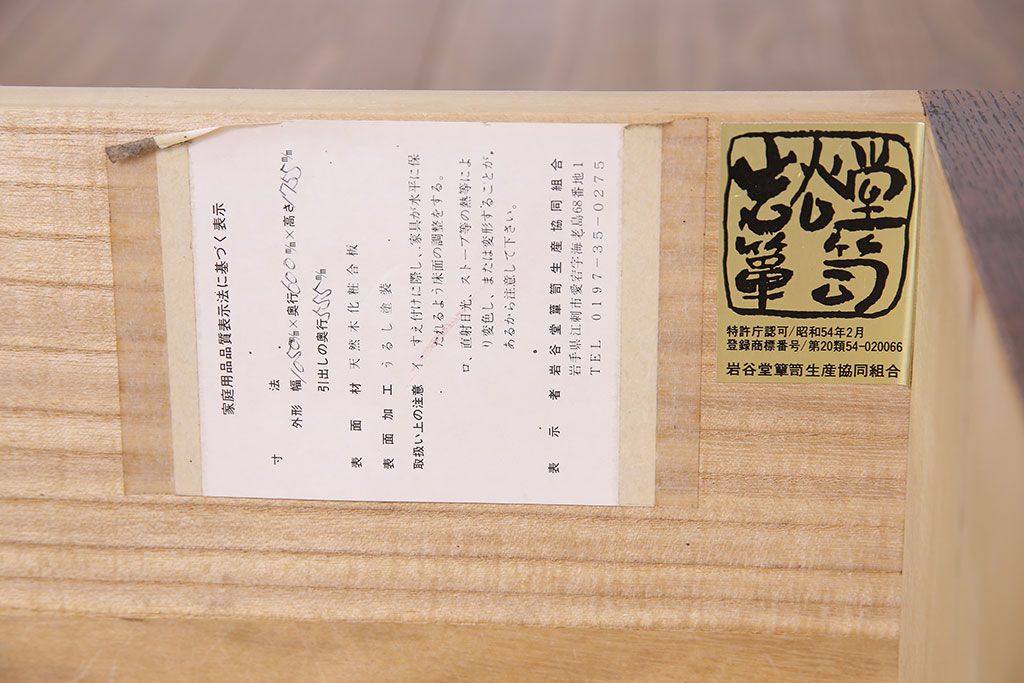 家庭用品品質表示法に基づく表示
寸法
外形 幅1050㎜×奥行600㎜×高さ1755㎜
引出しの奥行555㎜
表面材 天然木化粧合板
表面加工 うるし塗装
取扱い上の注意 イ、すえ付けに際し、家具が水平に保
たれるよう床面の調整をする。
ロ、直射日光、ストーブ等の熱等によ
り変色し、または変形することが
あるから注意して下さい。
表示者 岩谷堂簞笥生産協同組合
岩手県江刺市愛宕字海老島68番地1
TEL 0197-35-0275
岩谷堂
簞笥
特許庁認可/昭和54年2月
登録商標番号/第20類54-020066
岩谷堂簞笥生産協同組合